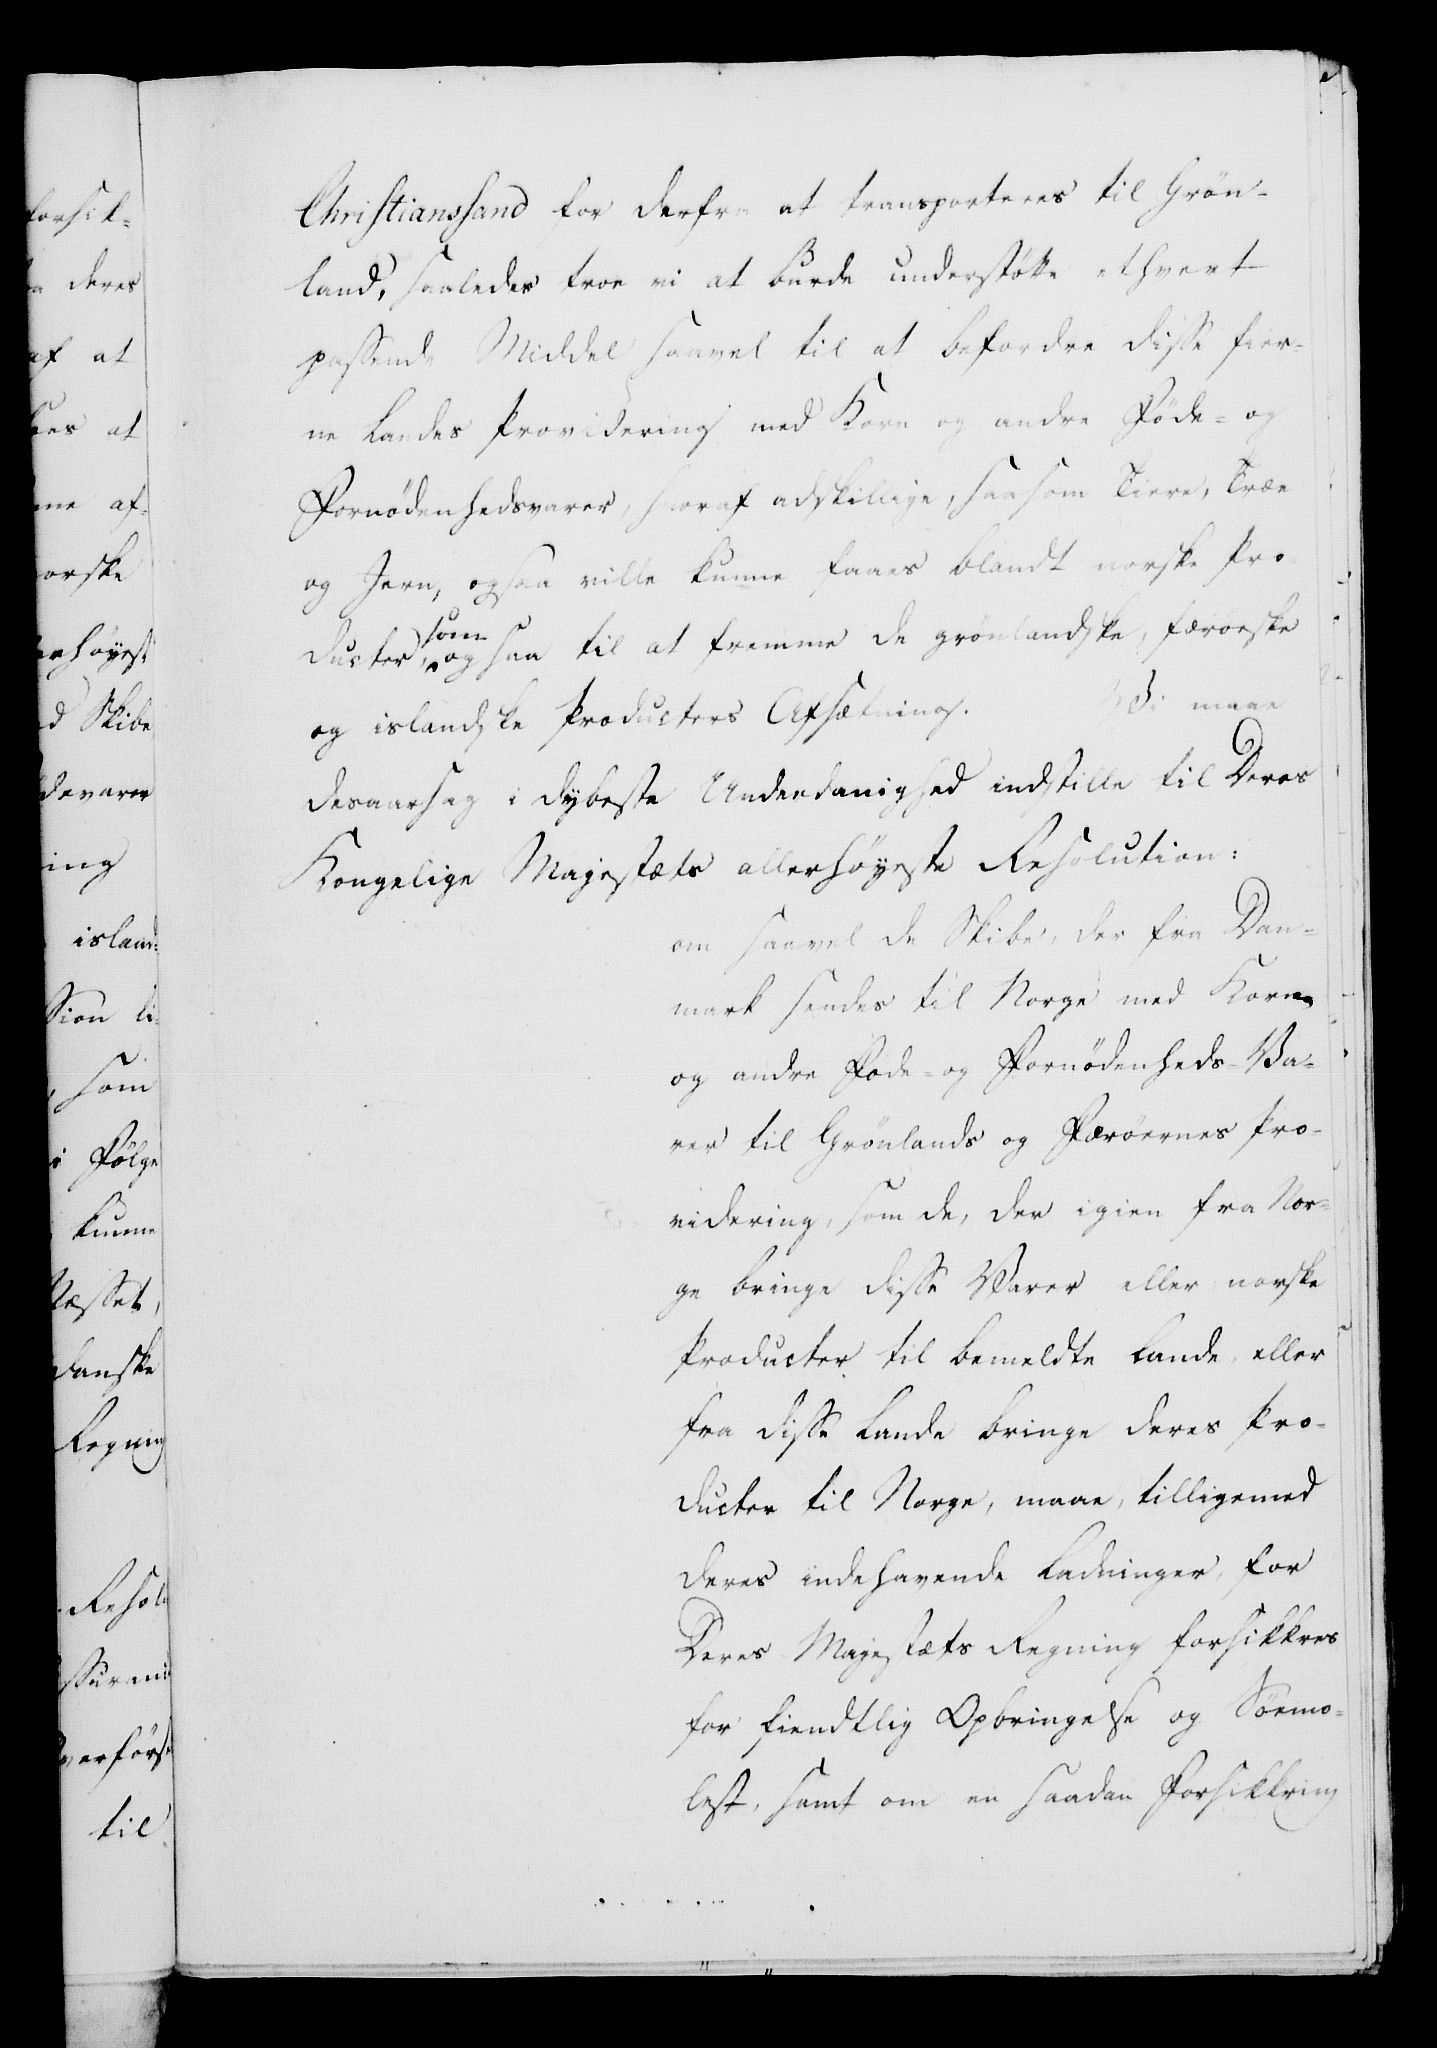 Christianssand for derfra at transporteres til Grön-
land, saaledes troe vi at burde understøtte ethvert
passende Middel saavel til at befordre disse fier-
ne Landes Providering med Korn og andre Föde- og
Fornödenhedsvarer, hvoraf adskillige, saasom Tiere, Træe
og Jern, ogsaa ville kunne faaes blandt norske Pro-
ducter, som ogsaa til at fremme de grönlandske, færöeske
og islandske Producters Afsætning. Vi maae
desaarsag i dybeste Underdanighed indstille til Deres
Kongelige Majestæts allerhöyeste Resolution:
om saavel de Skibe, der fra Dan-
mark sendes til Norge med Korn
og andre Föde- og Fornödenheds-Va-
rer til Grönlands og Færöernes Pro-
videring, som de, der igien fra Nor-
ge bringe disse Varer eller norske
Producter til bemeldte Lande, eller
fra disse Lande bringe deres Pro-
ducter til Norge, maae, tilligemed
deres indehavende Ladninger, for
Deres Majestæts Regning forsikkres
for fiendtlig Opbringelse og Söemo-
lest, samt om en saadan Forsikkring